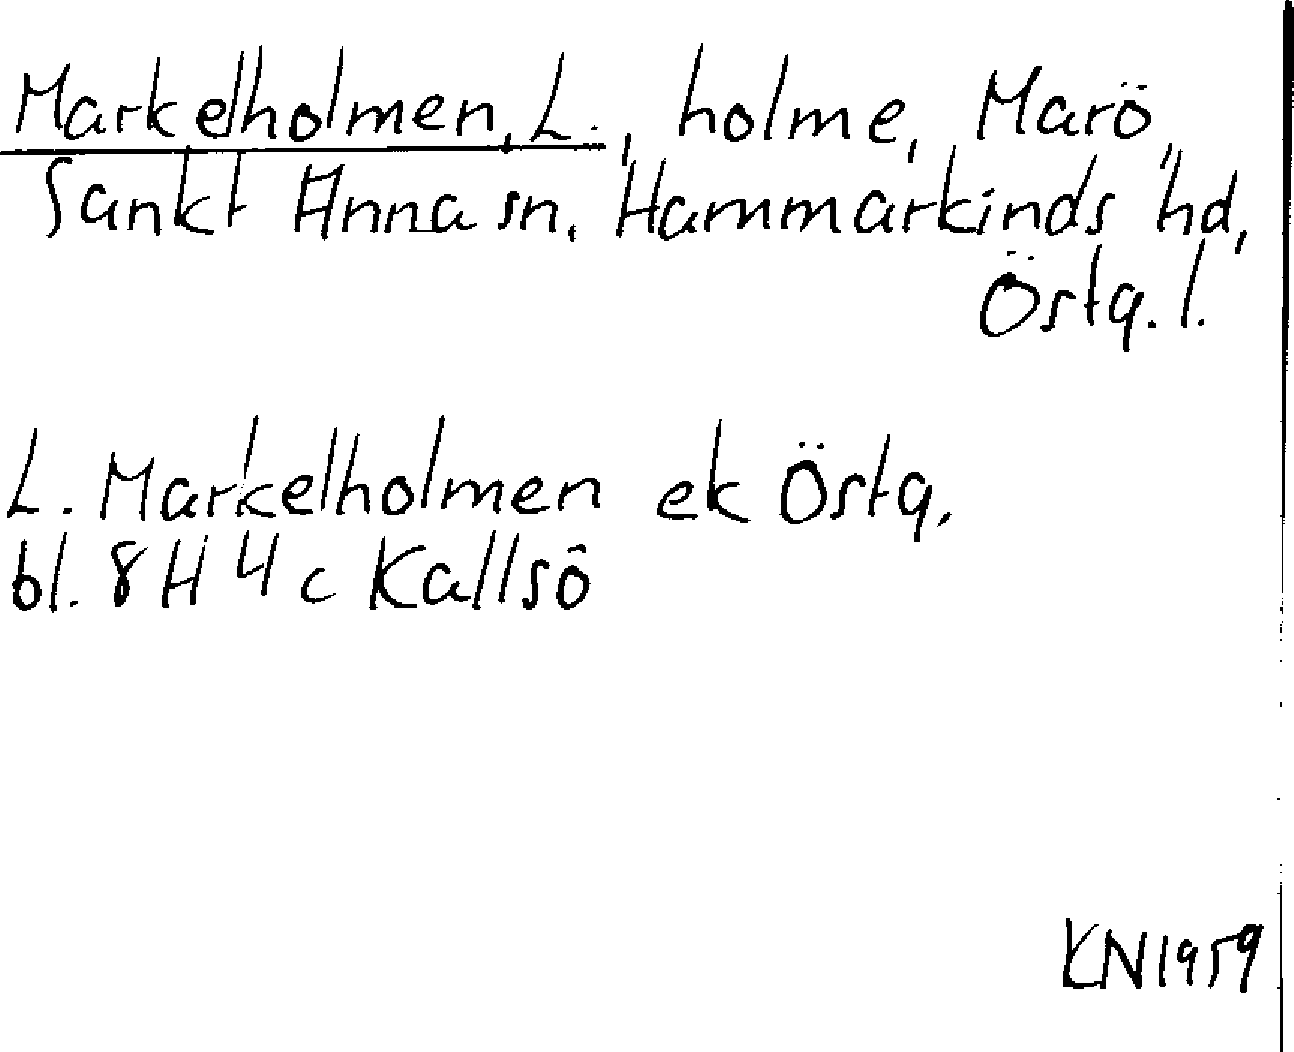 Markelholmen, L., holme, Marö,
Sankt Anna sn, Hammarkinds hd,
Östg. l.
L. Markelholmen ek Östg,
bl. 8H 4c Kallsö
KN1959